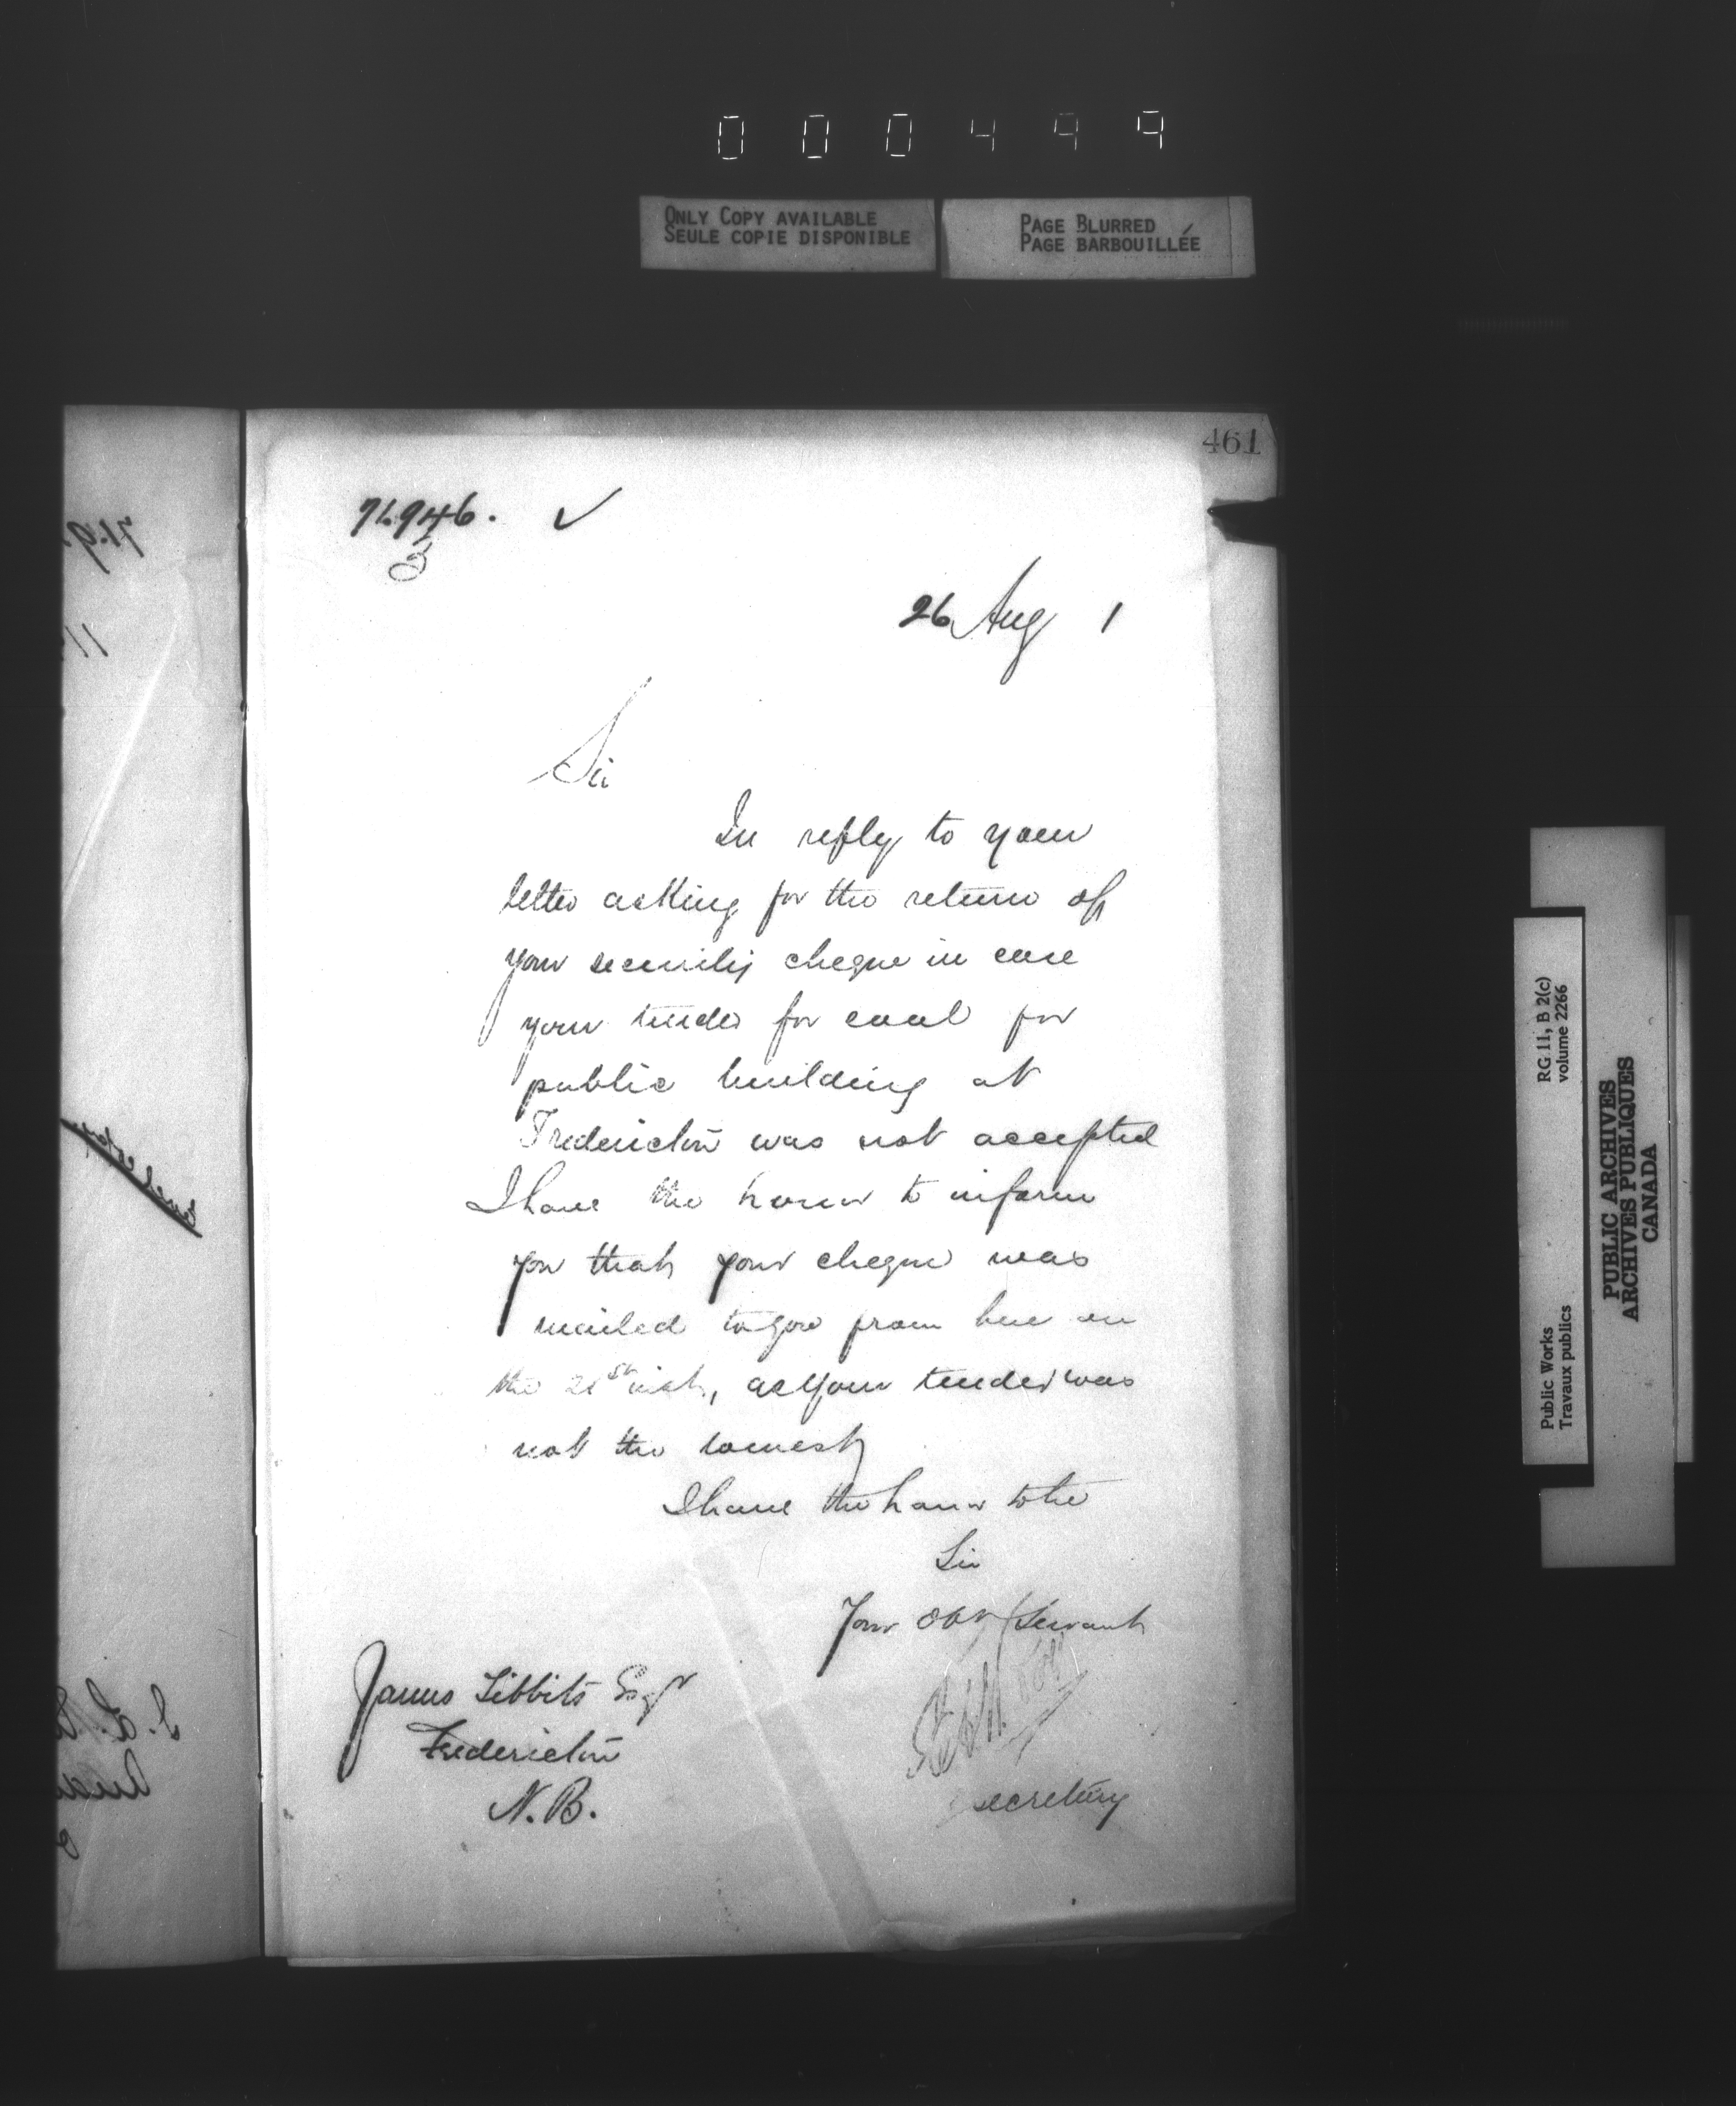 000499
ONLY COPY AVAILABLE
SEULE COPIE DISPONIBLE
PAGE BLURRED
PAGE BARBOUILLÉE
461
71.946.
26 Aug 1
Sir
In reply to your
letter asking for the return of
your security cheque in case
your tender for coal for
public building at
Fredericton was not accepted
I have the honor to inform
you that your cheque was
mailed to you from here on
the 21st inst, as your tender was
not the lowest
I have the honor to be
Sir
Your Obt Servant
Secretary
James Tibbits Esqr
Fredericton
N.B.
RG 11, B 2(c)
volume 2266
Public Works
Travaux publics
PUBLIC ARCHIVES
ARCHIVES PUBLIQUES
CANADA